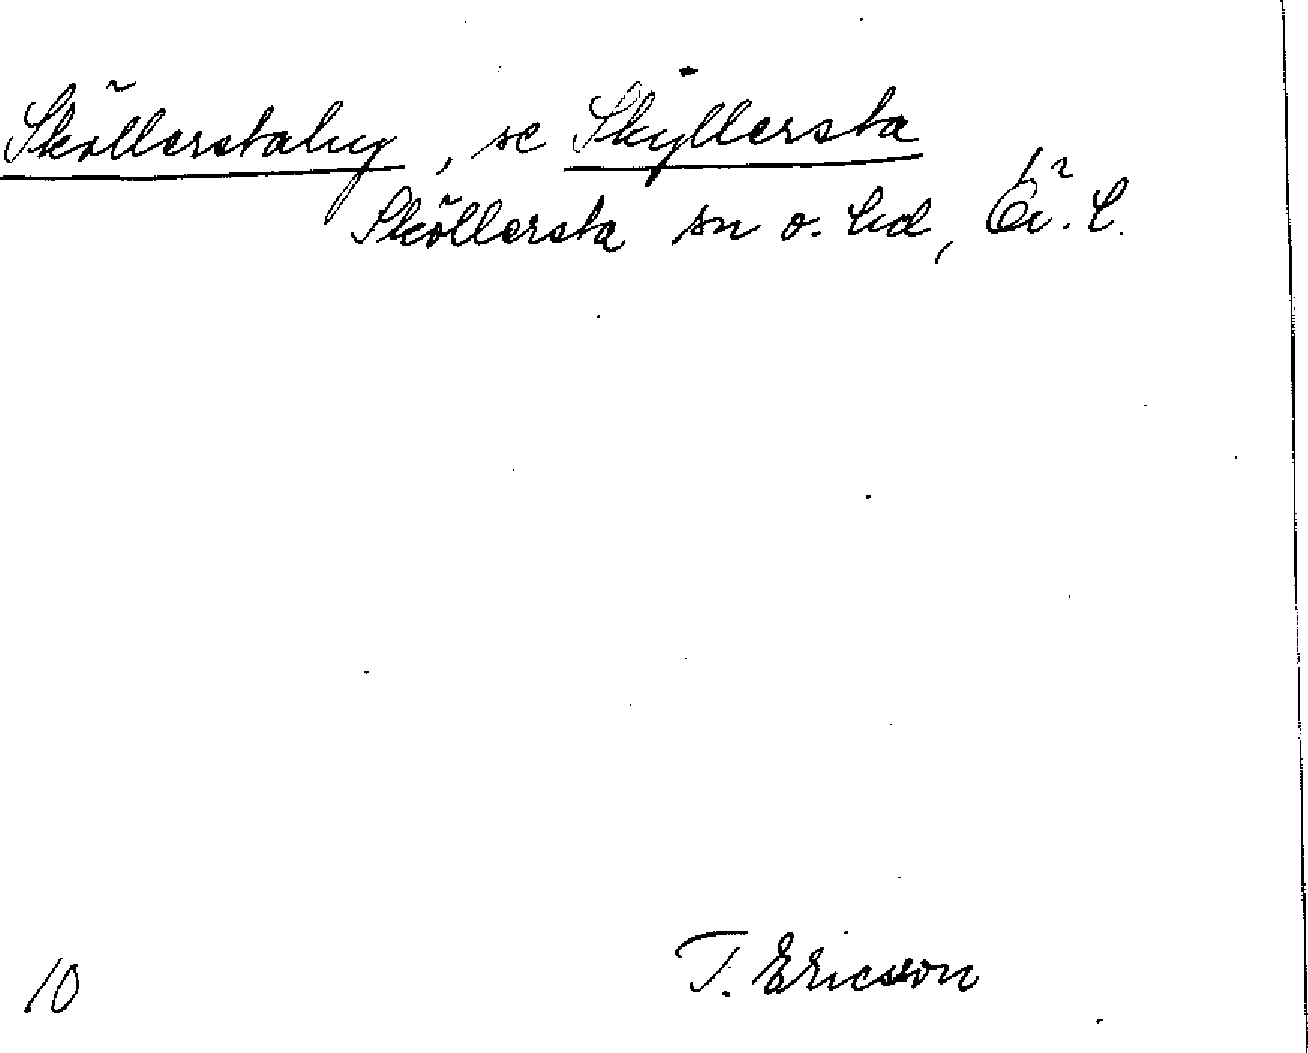 Sköllerstahig, se Skyllersta
Sköllersta sn o. hd, Ör. l.
T. Ericsson
10